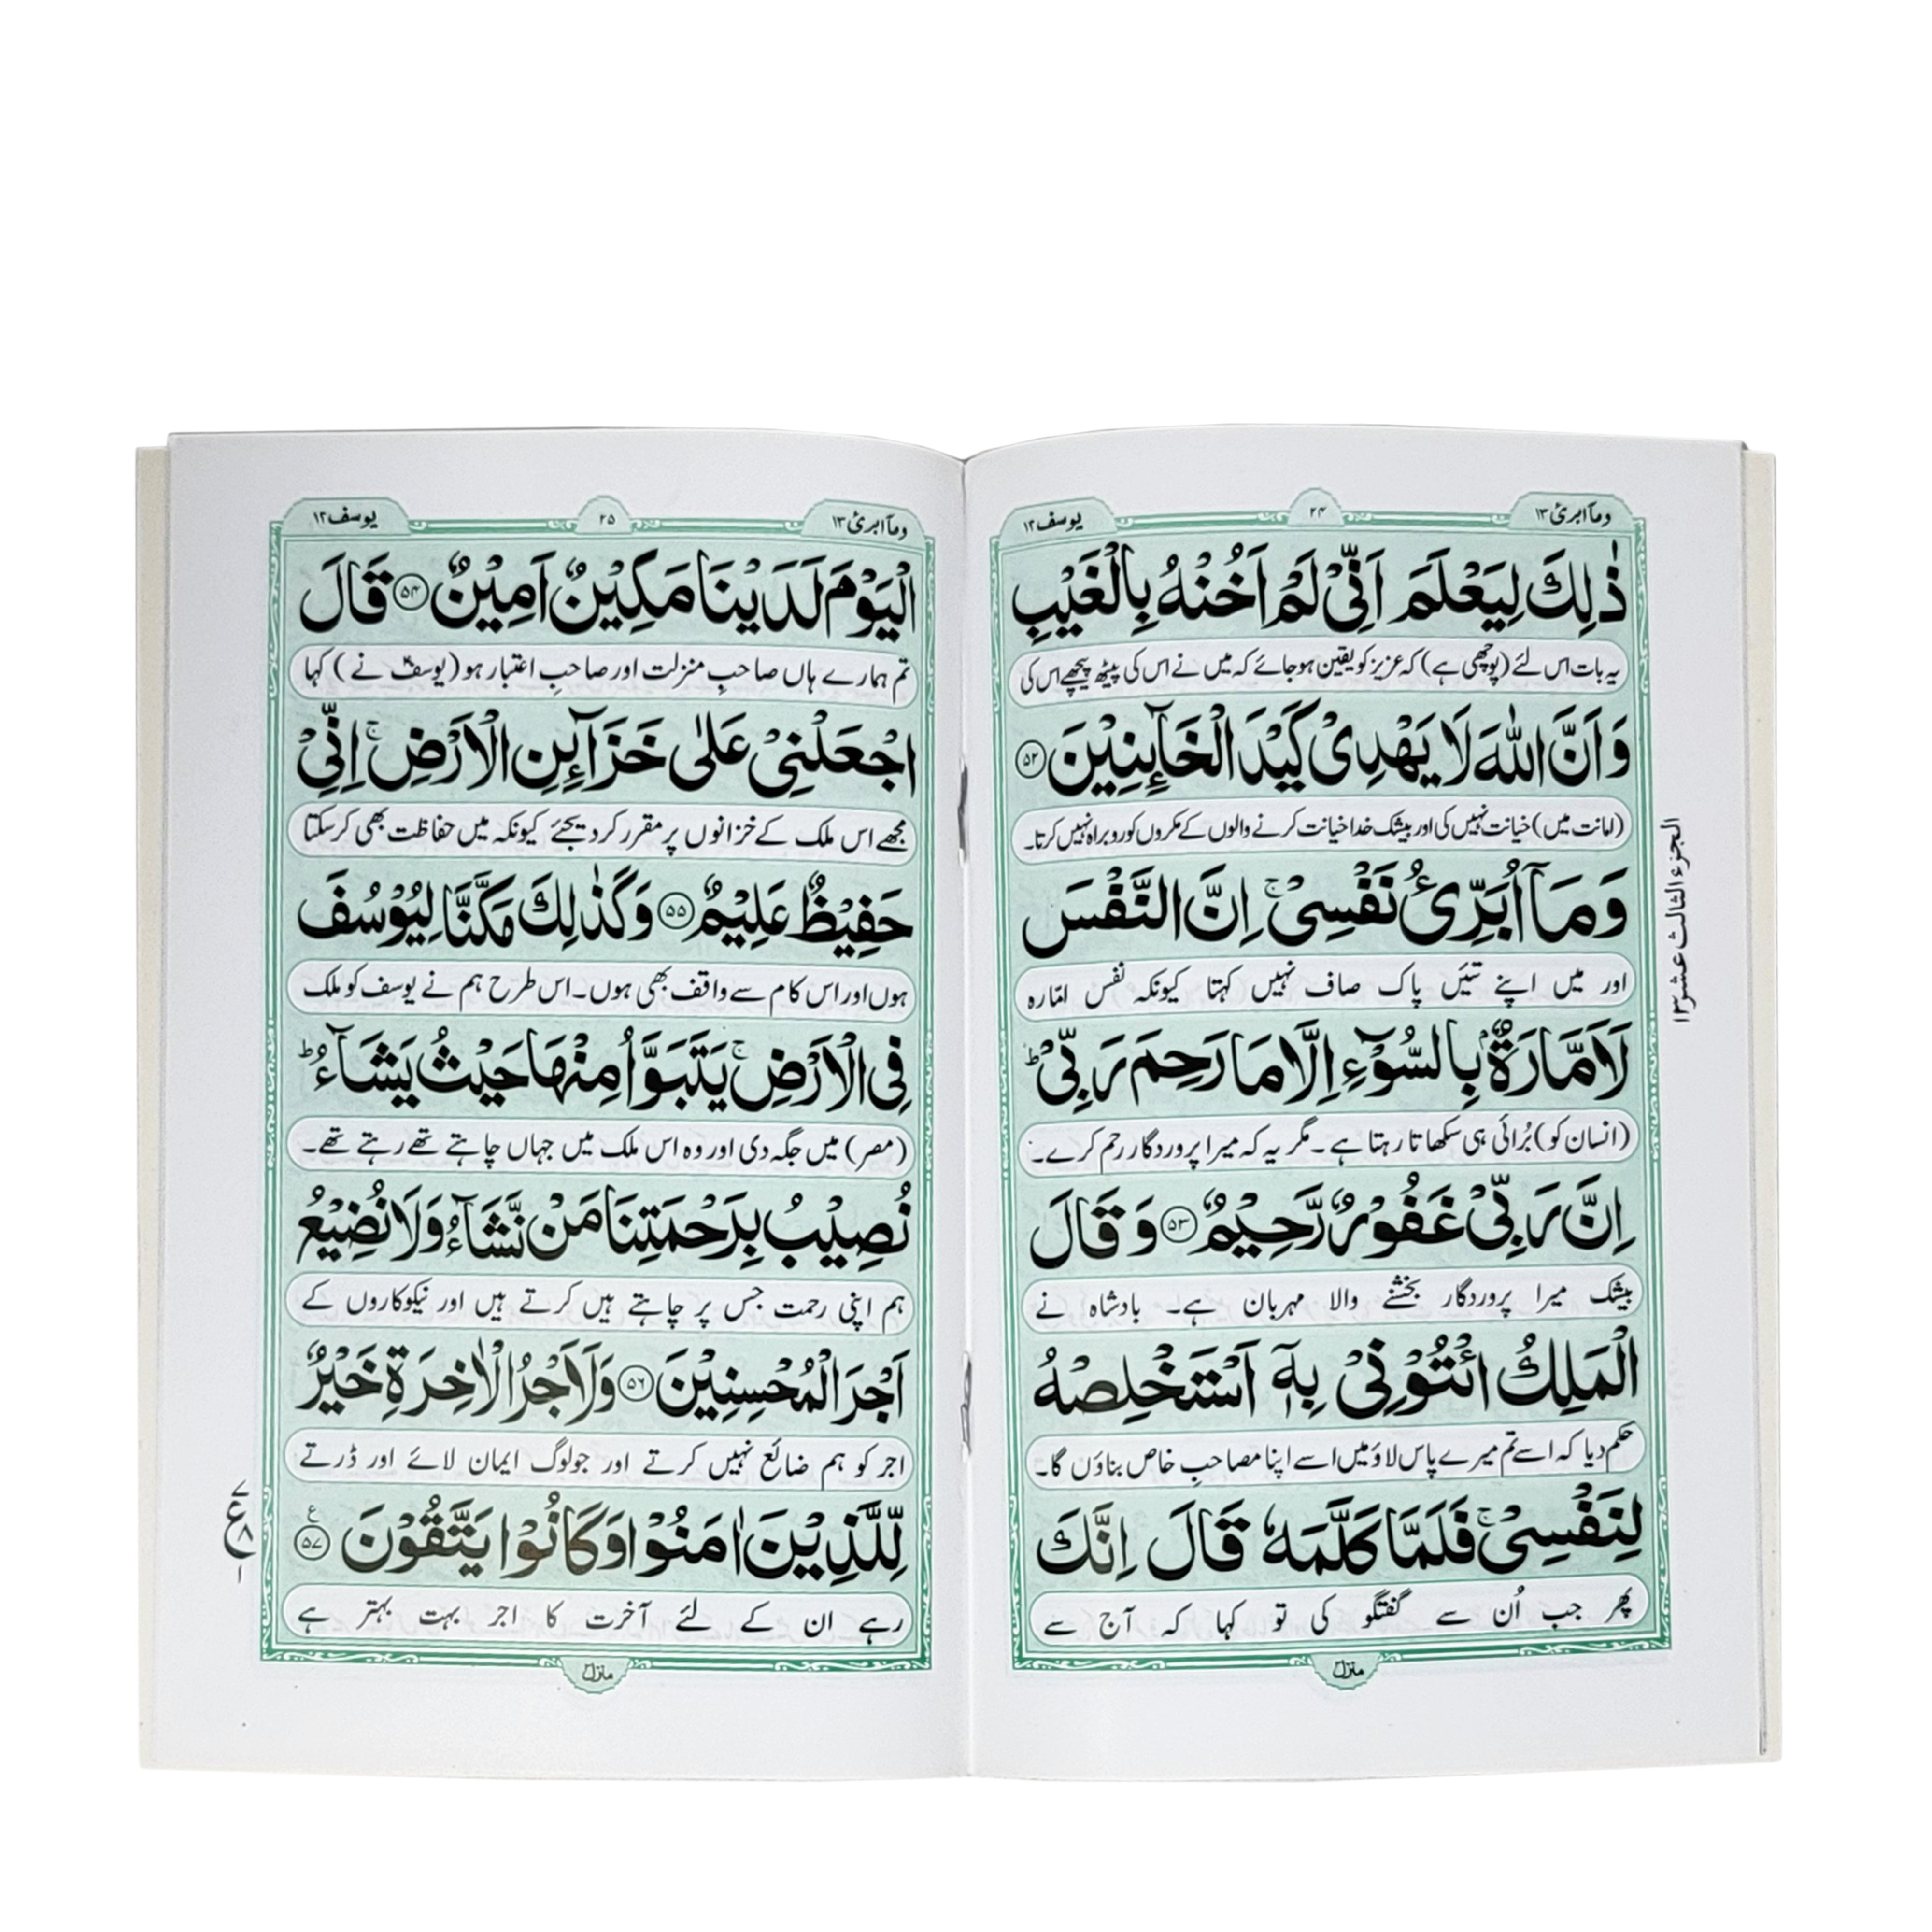 وما ابرئ ۱۳
۲۴
یوسف ۱۲
ذٰلِكَ لِيَعْلَمَ اَنِّيْ لَمْ اَخُنْهُ بِالْغَيْبِ
یہ بات اس لئے (پوچھی ہے) کہ عزیز کو یقین ہو جائے کہ میں نے اس کی پیٹھ پیچھے اس کی
وَاَنَّ اللّٰهَ لَا يَهْدِيْ كَيْدَ الْخَآئِنِيْنَ ۵۲
(امانت میں) خیانت نہیں کی اور بیشک خدا خیانت کرنے والوں کے مکروں کو روبراہ نہیں کرتا۔
وَمَآ اُبَرِّئُ نَفْسِيْ ۚ اِنَّ النَّفْسَ
اور میں اپنے تئیں پاک صاف نہیں کہتا کیونکہ نفس امّارہ
لَاَمَّارَةٌۢ بِالسُّوْٓءِ اِلَّا مَا رَحِمَ رَبِّيْ ؕ
(انسان کو) بُرائی ہی سکھاتا رہتا ہے۔ مگر یہ کہ میرا پروردگار رحم کرے۔
اِنَّ رَبِّيْ غَفُوْرٌ رَّحِيْمٌ ۵۳ وَقَالَ
بیشک میرا پروردگار بخشنے والا مہربان ہے۔ بادشاہ نے
الْمَلِكُ ائْتُوْنِيْ بِهٖٓ اَسْتَخْلِصْهُ
حکم دیا کہ اسے تم میرے پاس لاؤ میں اسے اپنا مصاحبِ خاص بناؤں گا۔
لِنَفْسِيْ ۚ فَلَمَّا كَلَّمَهٗ قَالَ اِنَّكَ
پھر جب اُن سے گفتگو کی تو کہا کہ آج سے
منزل ۳
الجزء الثالث عشر ۱۳
وما ابرئ ۱۳
۲۵
یوسف ۱۲
الْيَوْمَ لَدَيْنَا مَكِيْنٌ اَمِيْنٌ ۵۴ قَالَ
تم ہمارے ہاں صاحبِ منزلت اور صاحبِ اعتبار ہو (یوسفؑ نے) کہا
اجْعَلْنِيْ عَلٰى خَزَآئِنِ الْاَرْضِ ۚ اِنِّيْ
مجھے اس ملک کے خزانوں پر مقرر کر دیجئے کیونکہ میں حفاظت بھی کر سکتا
حَفِيْظٌ عَلِيْمٌ ۵۵ وَكَذٰلِكَ مَكَّنَّا لِيُوْسُفَ
ہوں اور اس کام سے واقف بھی ہوں۔ اس طرح ہم نے یوسف کو ملک
فِي الْاَرْضِ ۚ يَتَبَوَّاُ مِنْهَا حَيْثُ يَشَآءُ ؕ
(مصر) میں جگہ دی اور وہ اس ملک میں جہاں چاہتے تھے رہتے تھے۔
نُصِيْبُ بِرَحْمَتِنَا مَنْ نَّشَآءُ وَلَا نُضِيْعُ
ہم اپنی رحمت جس پر چاہتے ہیں کرتے ہیں اور نیکوکاروں کے
اَجْرَ الْمُحْسِنِيْنَ ۵۶ وَلَاَجْرُ الْاٰخِرَةِ خَيْرٌ
اجر کو ہم ضائع نہیں کرتے اور جو لوگ ایمان لائے اور ڈرتے
لِّلَّذِيْنَ اٰمَنُوْا وَكَانُوْا يَتَّقُوْنَ ۵۷ ع
رہے ان کے لئے آخرت کا اجر بہت بہتر ہے
منزل ۳
۷
ع ۸
۱